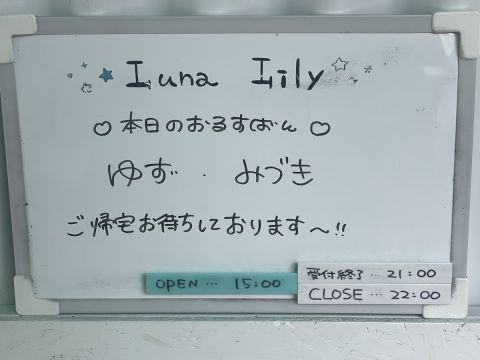 Luna Lily
♡ 本日のおるすばん ♡
ゆず . みづき
ご帰宅お待ちしております〜!!
OPEN … 15:00
受付終了 … 21:00
CLOSE … 22:00